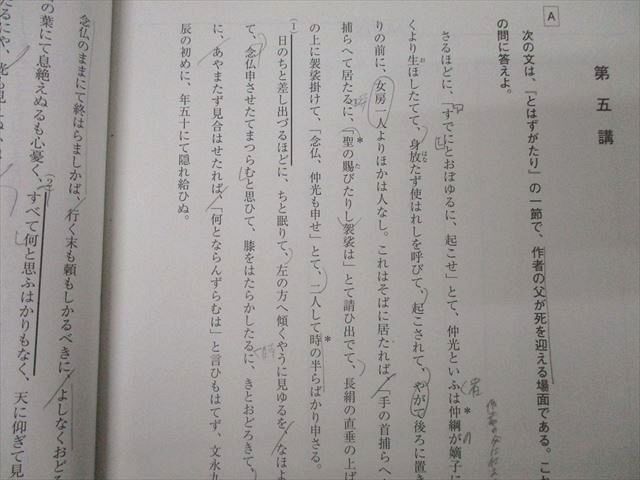 第五講
A
次の文は、『とはずがたり』の一節で、作者の父が死を迎える場面である。これ
の問に答えよ。
さるほどに、「すでにとおぼゆるに、起こせ」とて、仲光といふは仲綱が嫡子に
くより生ほしたてて、身放たず使はれしを呼びて、起こされて、やがて後ろに置き
りの前に、女房一人よりほかは人なし。これはそばに居たれば、「手の首捕らへ
捕らへて居たるに、「聖の賜びたりし袈裟は」とて請ひ出でて、長絹の直垂の上
の上に袈裟掛けて、「念仏、仲光も申せ」とて、二人して時の半らばかり申さる。
(1)日のちと差し出づるほどに、ちと眠りて、左の方へ傾くやうに見ゆるを、なほよ
て、念仏申させたてまつらむと思ひて、膝をはたらかしたるに、きとおどろきて、
に、あやまたず見合はせたれば、「何とならんずらむは」と言ひもはてず、文永九
辰の初めに、年五十にて隠れ給ひぬ。
念仏のままにて終はらましかば、行く末も頼もしかるべきに、よしなくおどろ
の葉にて息絶えぬるも心憂く、すべて何と思ふはかりもなく、天に仰ぎて見